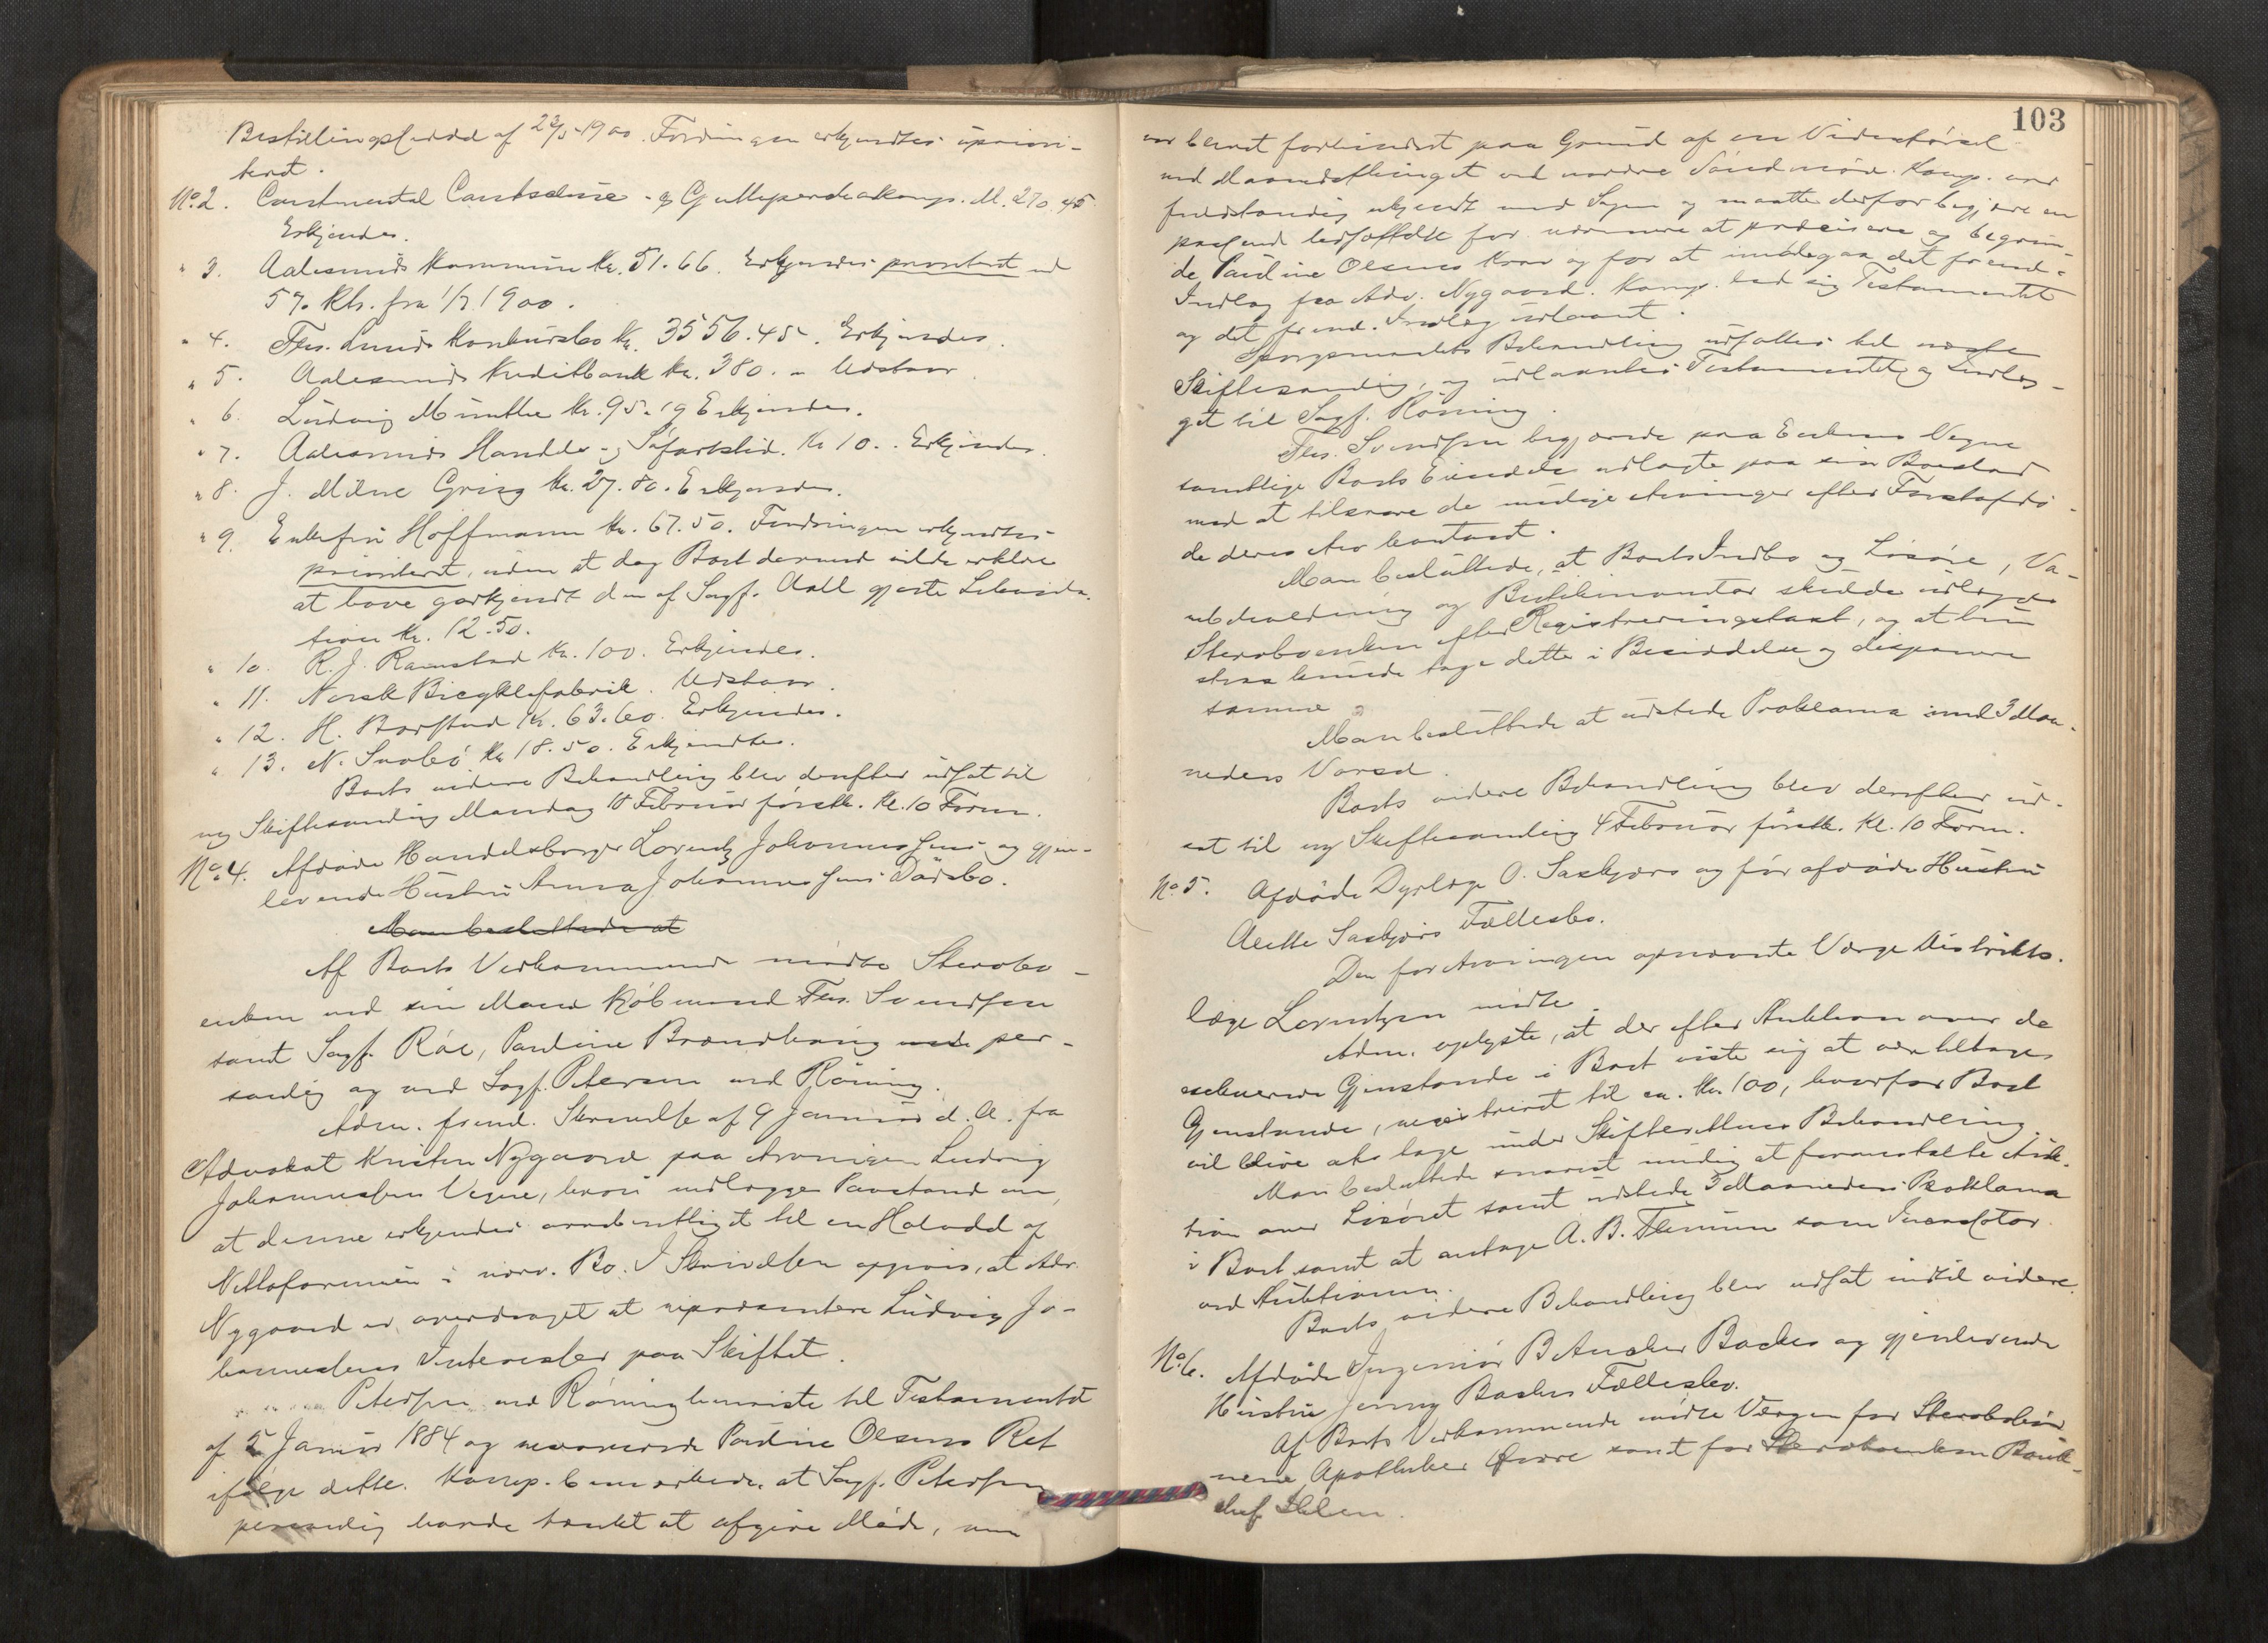 Bestillingsseddel af 23/5-1900. Fordringen erkjendtes upriori-
teret.
No. 2. Continental Caoutschouc- og Guttaperchakomp. M. 270.45
Erkjendes.
" 3. Aalesunds Kommune Kr. 51.66. Erkjendes prioritert med
5% Rts. fra 1/7 1900.
" 4. Ths. Lunds Konkursbo Kr. 3556.45. Erkjendes.
" 5. Aalesunds Kreditbank Kr. 380. - Udstaar
" 6. Ludvig Munthe Kr. 95.19 Erkjendes.
" 7. Aalesunds Handels- og Söfartstid. Kr 10. . Erkjendes.
" 8. J. Milne Grieg Kr. 27.80. Erkjendes.
" 9. Enkefru Hoffmann Kr. 67.50. Fordringen erkjendtes
prioritert, uden at dog Boet dermed vilde erklære
at have godkjendt den af Sagf. Aall gjorte Likvida-
tion Kr. 12.50.
" 10. R. J. Ramstad Kr. 100. Erkjendes.
" 11. Norsk Bicyklefabrik. Udstaar.
" 12. H. Barstad Kr. 63.60. Erkjendes.
" 13. N. Kr 18.50. Erkjendtes.
Boets videre Behandling blev derefter udsat til
ny Skiftesamling Mandag Februar förstk. Kl. 10 Form.
No. 4. Afdöde Handelsborger Lorentz Johannessens og gjen-
levende Hustru Anna Johannessens Dödsbo.
Man besluttede at
Af Boets Vedkommende mödte Stervbo-
enken ved sin Mand Köbmand Ths. Svendsen
samt Sagf. Röe, Pauline Brandhaug per-
sonlig og ved Sagf. Petersen ved Röning.
Adm. fremd. Skrivelse af 9 Januar d. A. fra
Advokat Kristen Nygaard paa Arvingen Ludvig
Johannessens Vegne, hvori nedlægges Paastand om,
at denne erkjendes arveberettiget til en Halvdel af
Nettoformuen i nærv. Bo. I Skrivelsen opgives, at Adv.
Nygaard er overdraget at repræsentere Ludvig Jo-
hannessens Interesser paa Skiftet.
Petersen ved Röning henviste til Testamentet
af 5 Januar 1884 og reserverede Pauline Olsens Ret
ifölge dette. Komp. bemærkede, at Sagf. Petersen
personlig havde tænkt at afgive Möde, men
103
var blevet forhindret paa Grund af en Vidneförsel
ved Maanedsthinget ved nordre Söndmöre. Komp. var
fuldstændig ukjendt med Sagen og maatte derfor begjære en
passende Udsættelse for nærmere at præcisere og begrun-
de Pauline Olsens Krav og for at imödegaa det fremd.
Indlæg fra Adv. Nygaard. Komp. bad sig Testamentet
og det fremd. Indlæg udlaant.
Spörgsmaalets Behandling udsattes til næste
Skiftesamling, og udlaantes Testamentet og Indlæg-
get til Sagf. Röning.
Ths. Svendsen begjærede paa Enkens Vegne
samtlige Boets Eiendele udlagte paa sin Boeslod
mod at tilsvare de mulige Arvinger efter Forstafdö-
de deres Arv kontant.
Man besluttede, at Boets Indbo og Lösöre, Va-
rebeholdning og Butikinventar skulde udlægges
Stervboenken efter Registreringstaxt, og at hun
strax kunde tage dette i Besiddelse og disponere
samme.
Man besluttede at udstede Proklama med 3 Maa-
neders Varsel.
Boets videre Behandling blev derefter ud-
sat til ny Skiftesamling 4 Februar förstk. Kl. 10 Form.
No. 5. Afdöde Dyrlæge O. Saxbjörs og för afdöde Hustru
Alette Saxbjörs Fællesbo.
Den for Arvingen opnævnte Værge Distrikts-
læge Lorentzen mödte.
Adm. oplyste, at der efter Auktion over de
Gjenstande i Boet viste sig at være tilbage
Gjenstande, registreret til ca. Kr. 100, hvorfor Boet
vil blive at tage under Skifterettens Behandling.
Man besluttede snarest mulig at foranstalte Auk-
tion over Lösöret samt udstede 3 Maaneders Proklama
i Boet samt at antage A. B. Flemmen som Inkassator
ved Auktionen.
Boets videre Behandling blev udsat indtil videre.
No. 6. Afdöde Ingeniör B Ancker Backes og gjenlevende
Hustru Jenny Backes Fællesbo.
Af Boets Vedkommende mödte Værgen for Stervbobör-
nene, Apotheker Övre samt for Stervboenken Bank-
chef